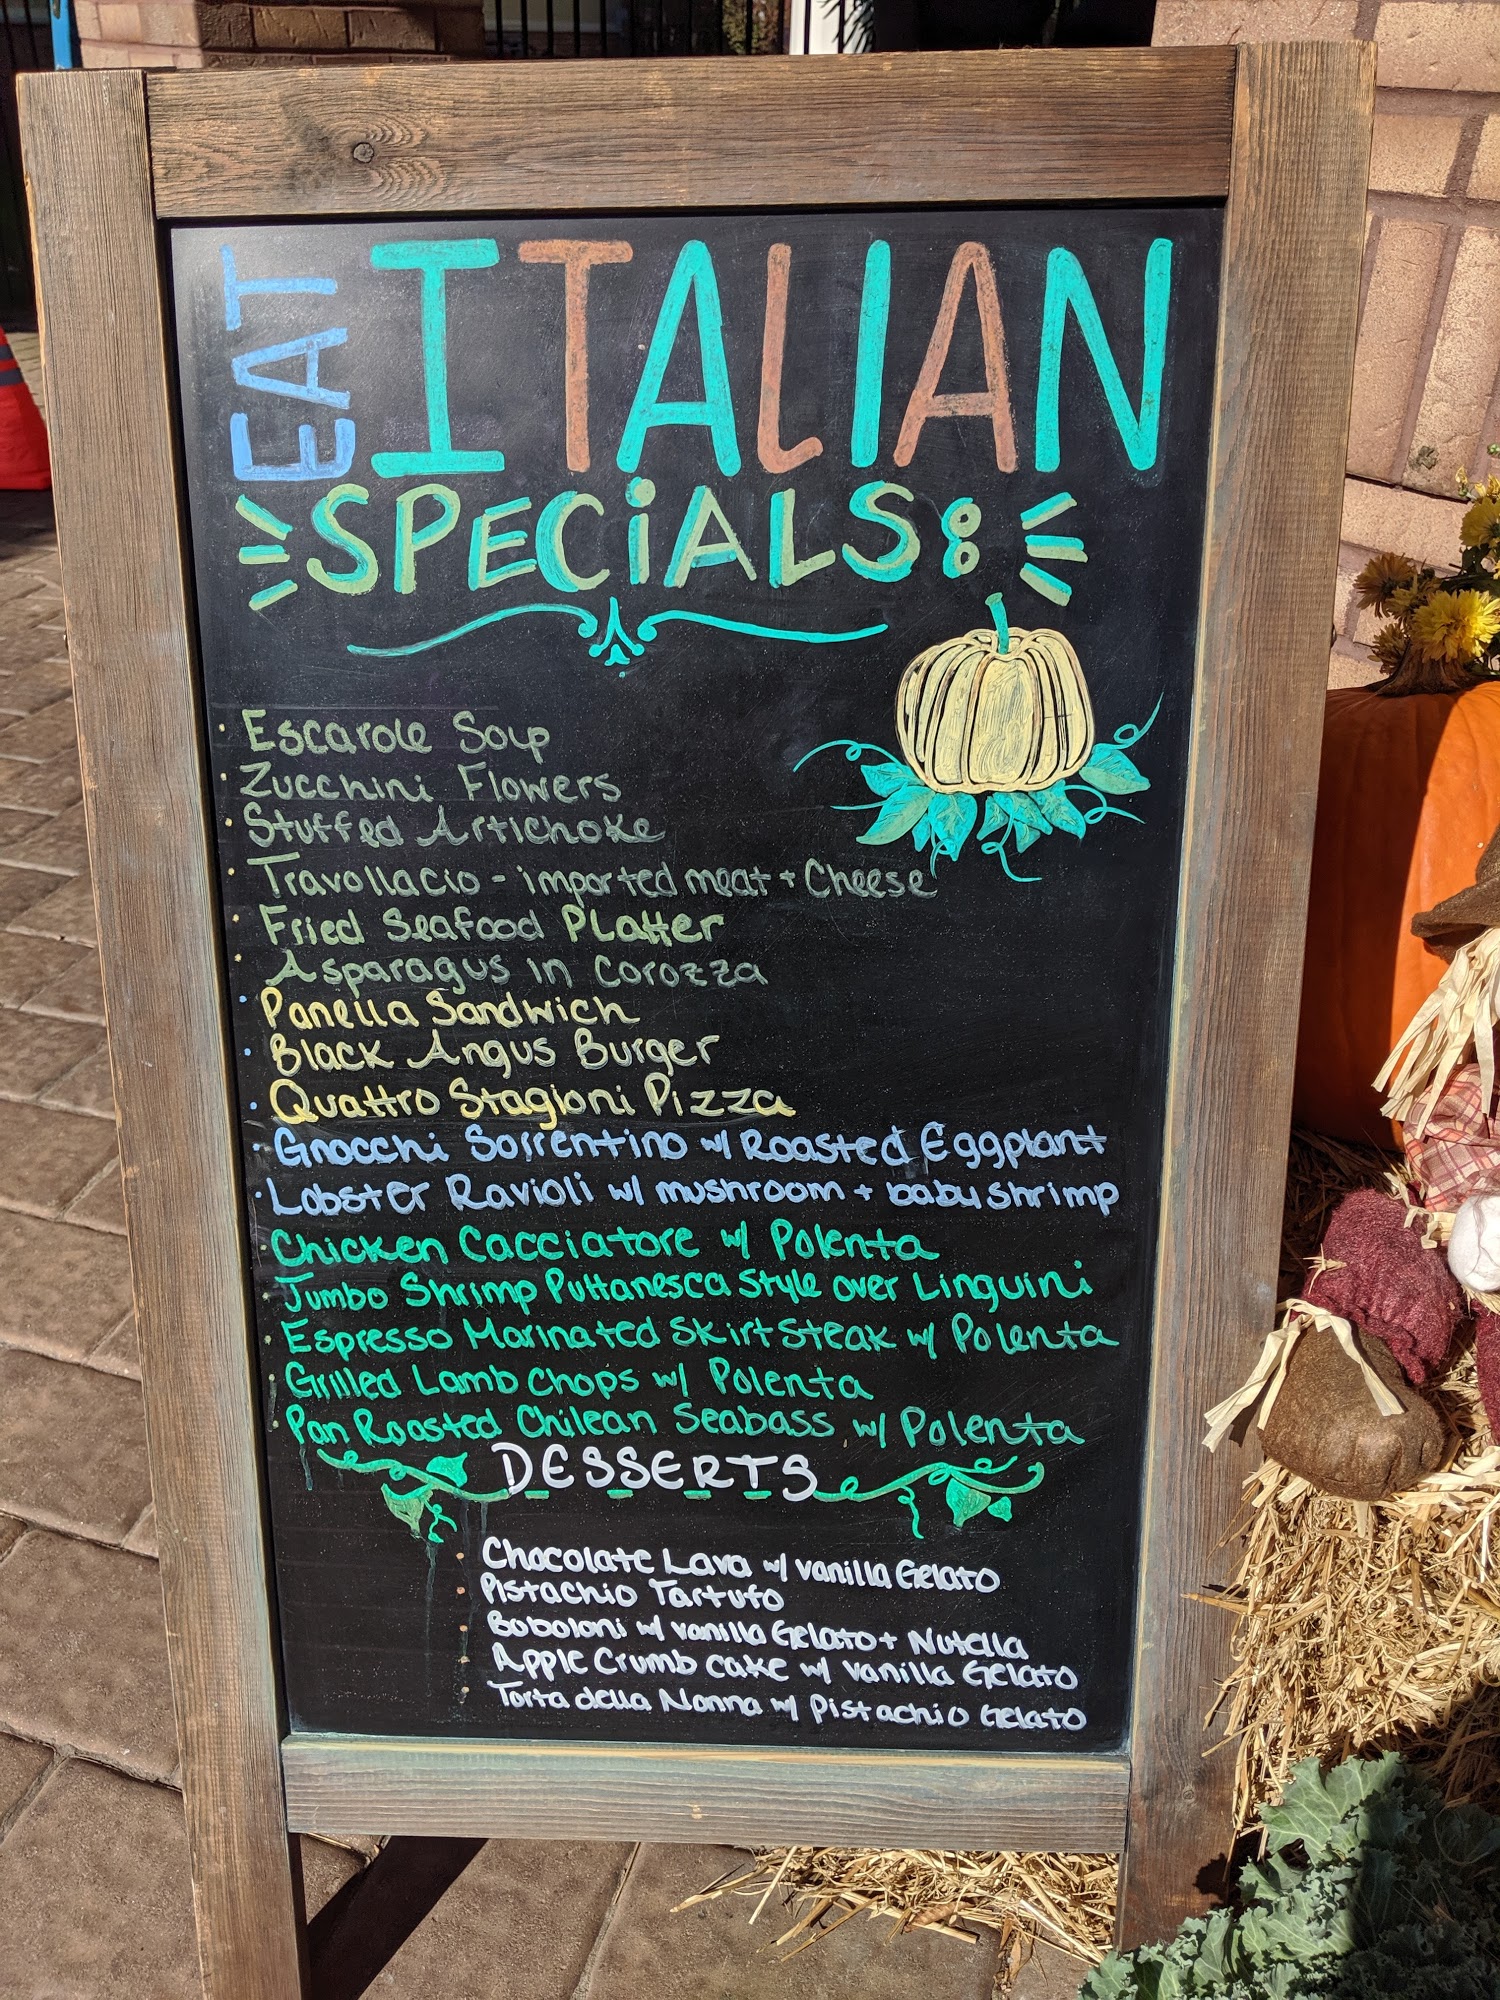 EAT ITALIAN
SPECiALS:
Escarole Soup
Zucchini Flowers
Stuffed Artichoke
Travollacio - imported meat + Cheese
Fried Seafood PLatter
Asparagus in Corozza
Panella Sandwich
Black Angus Burger
Quattro Stagioni Pizza
Gnocchi Sorrentino w/ Roasted Eggplant
Lobster Ravioli w/ mushroom + baby shrimp
Chicken Cacciatore w/ Polenta
Jumbo Shrimp Puttanesca Style over Linguini
Espresso Marinated Skirt Steak w/ Polenta
Grilled Lamb Chops w/ Polenta
Pan Roasted Chilean Seabass w/ Polenta
DESSERTS
Chocolate Lava w/ vanilla Gelato
Pistachio Tartufo
Boboloni w/ vanilla Gelato + Nutella
Apple Crumb cake w/ vanilla Gelato
Torta della Nonna w/ Pistachio Gelato